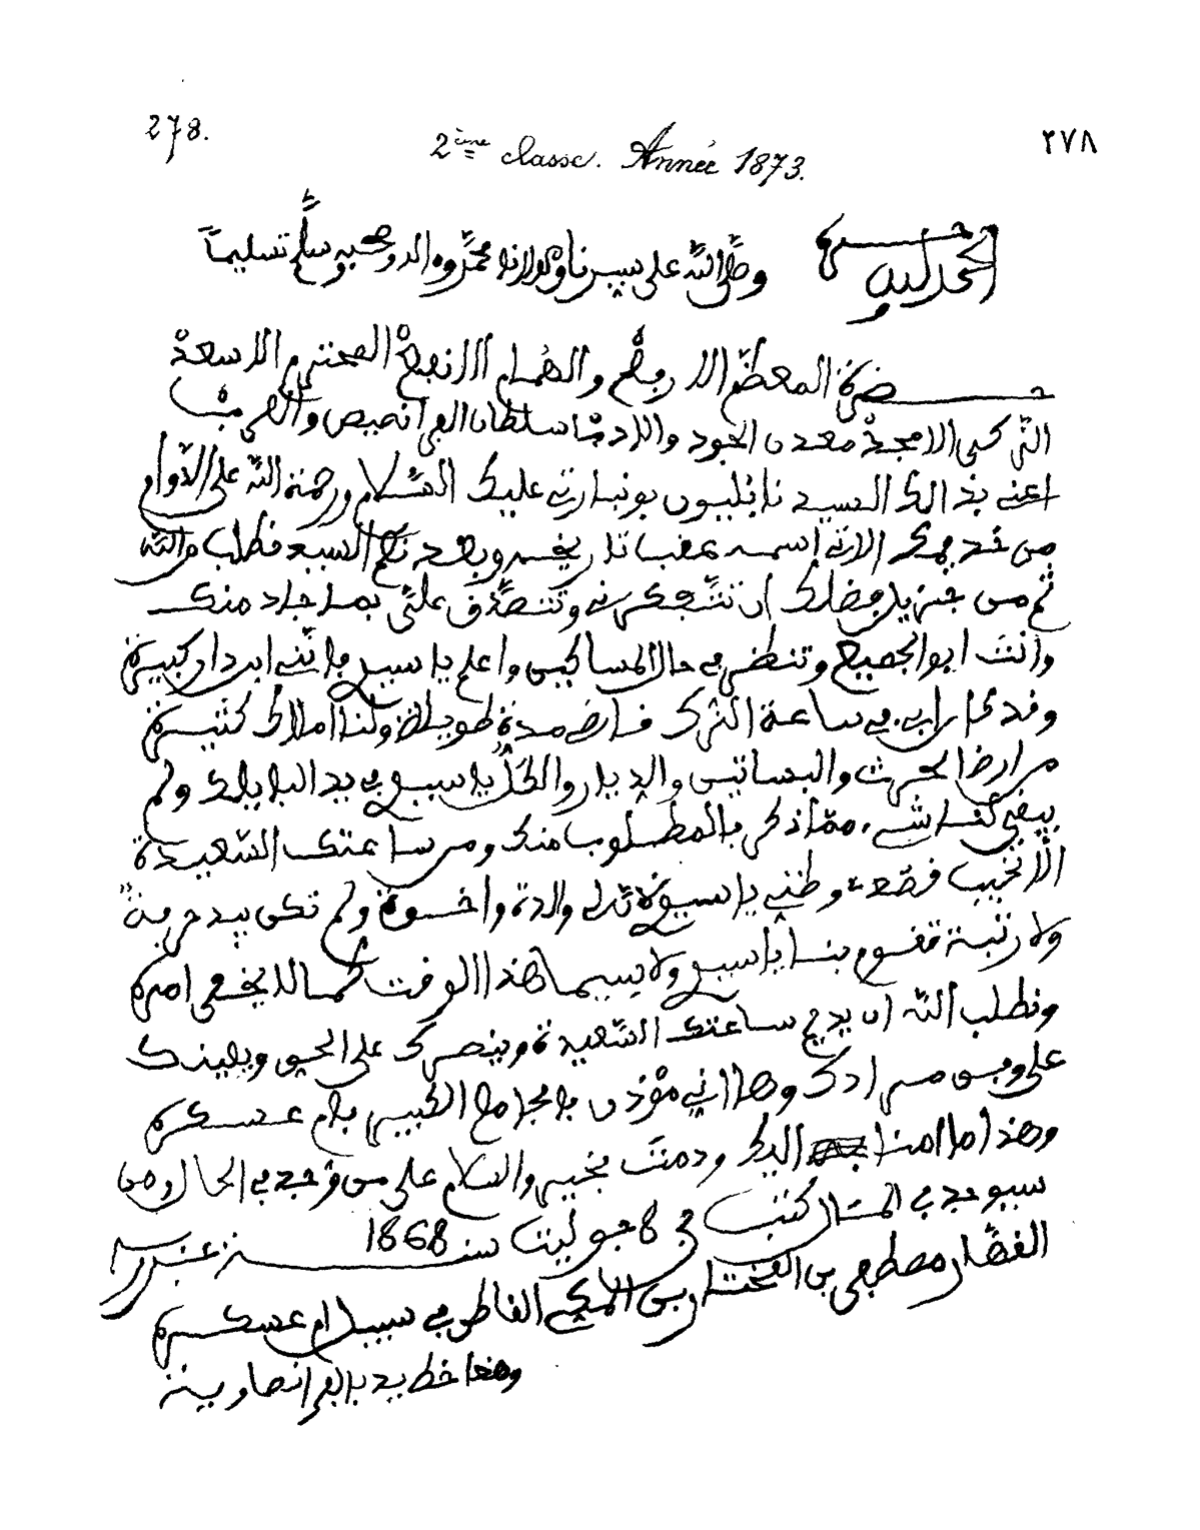 278.
2ème classe. Année 1873.
٢٧٨
الحمد لله وحده
وصلى الله على سيدنا ومولانا محمد وءاله وصحبه وسلم تسليما
حضرة المعظم الارفع والهمام الانفع المحترم الاسعد
الزكي الامجد معدن الجود والادب سلطان الفرانصيص والعرب
اعني بذالك السيد نابليون بونبارتي عليك السلام ورحمة الله على الدوام
من خديمك الاتي اسمه عقب تاريخه وبعد نعم السيد فطلب والله
ثم من جزيل فضلك ان تتفكرني وتتصدق علي بما جاد منك
وانت ابو الجميع وتنظر في حال المساكين واعلم يا سيدي بانني ابن دار كبيرة
وقد كان ابي في ساعة الترك قايض مدة طويلة ولنا املاك كثيرة
من ارض الحرث والبساتين والديار والكل يا سيدي في يد البايلك ولم
يبقى لنا شيء مما ذكر بالمطلوب منك ومن ساعتك السعيدة
الا نخيب قصد وظني يا سيدي لان لي والدة واخوة ولم تكن بيد حرفة
ولا رتبة تقوم بنا يا سيدي ولا سيما هذا الوقت كما لا يخفى امره
ونطلب الله ان يديم ساعتك السعيدة وينصرك على الحق ويعينك
على وفق مرادك وها اني مؤذن بالجامع الكبير بام عسكر
وهذا ما امنا اليك ودمت بخير والسلام على من وجد في الحال ومن
سيوجد في المئال كتب في 8 جوليت سنة 1868 عن
الفقار مصطفى بن المختار بن المكي القاطن في سيدي ام عسكر
وهذا خط يد بالفرانصاوية